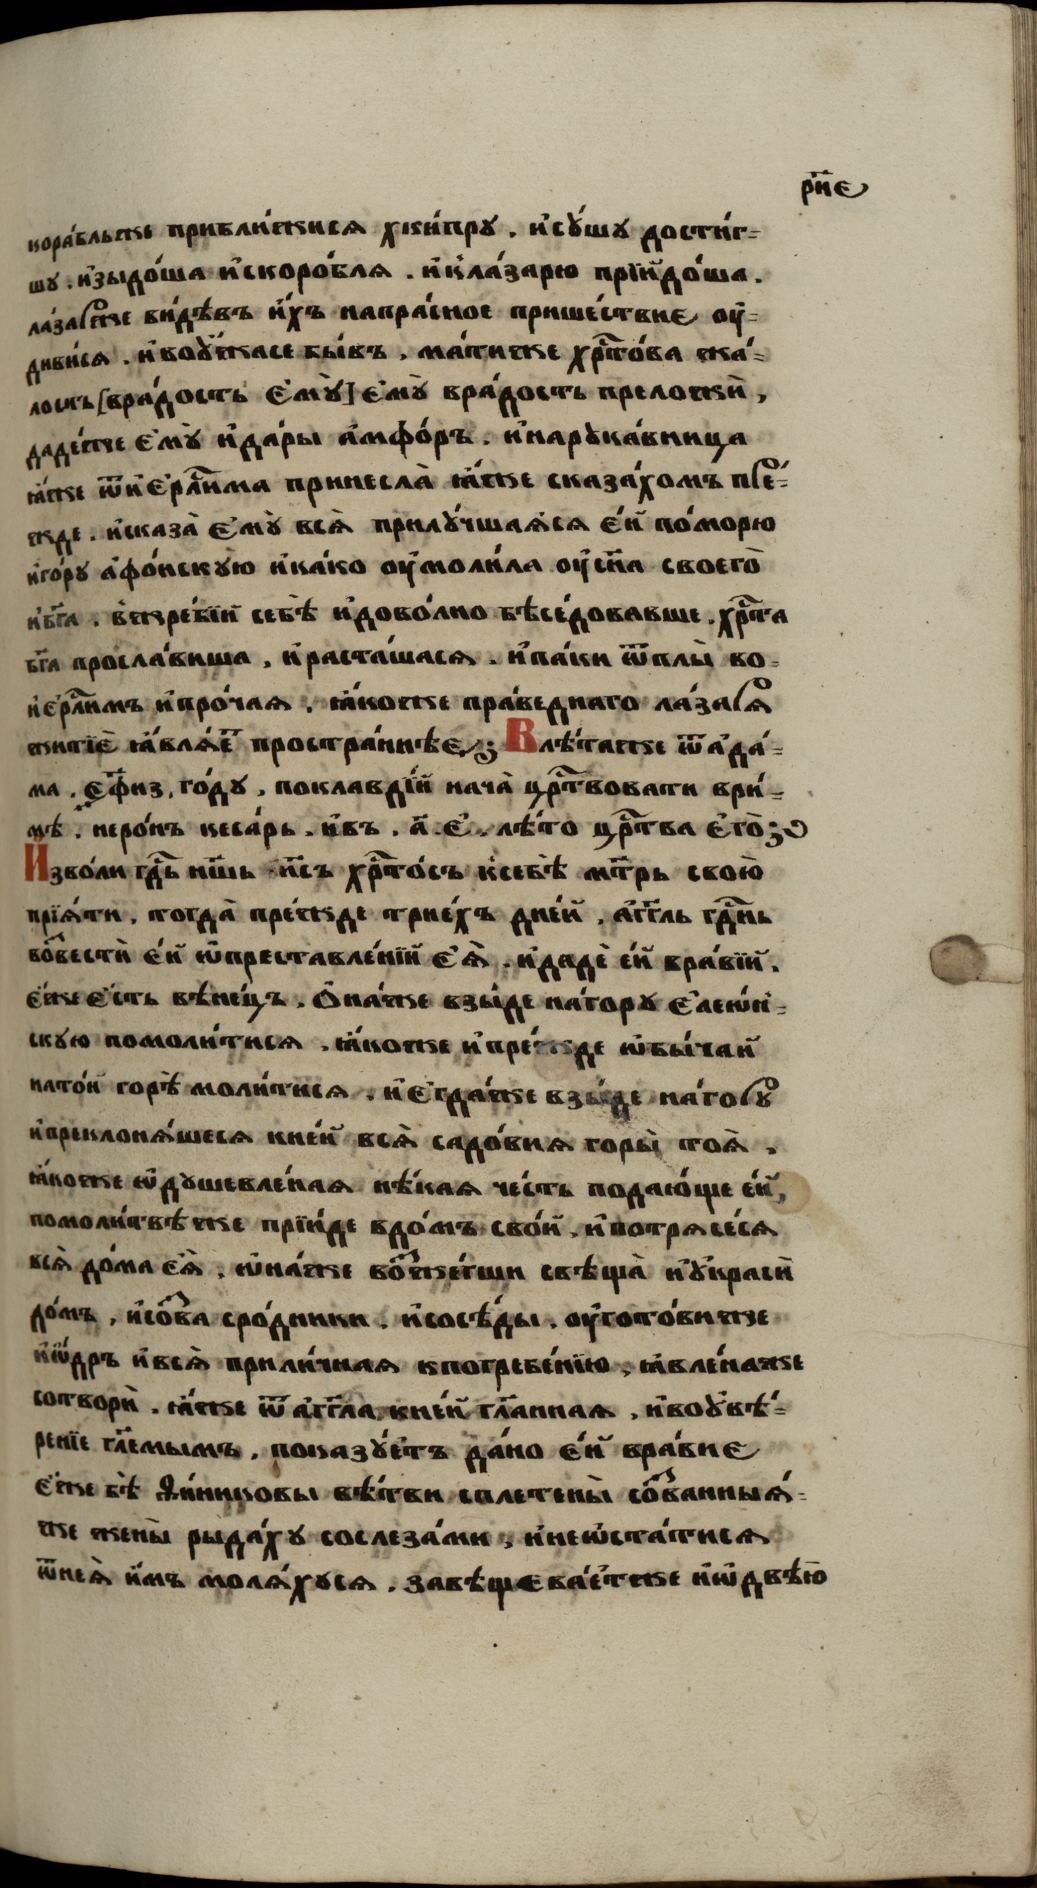 рн҃е
кора́бльже прибли́жися хки́пру . и҆су́шу дости́г=
шу . и҆зыдо́ша и҆скоро́бля . и҆к̾ла́зарю прїи҆до́ша .
ла́заⷬ҇же ви́дѣвъ и҆́хъ напра́сное прише́ствие ѹ҆=
диви́ся . и҆воу҆́жасе бы́въ , ма́тиже хрⷭ҇то́ва жа́=
лость [вра́дость є҆мꙋ̀] є҆мꙋ̀ вра́дость преложѝ ,
даде́же є҆мꙋ̀ и҆да́ры а҆мфо́ръ . и҆нарука́вница
ꙗ҆́же ѿи҆єрⷭ҇ли́ма принесла̀ ꙗ҆́же сказа́хомъ пⷬ҇е́=
жде . и҆сказа̀ є҆мꙋ̀ всѧ̀ прилу́чшаѧ҆сѧ є҆́й помо́рю
и҆го́ру а҆фо́нскую и҆ка́ко ѹ҆моли́ла ѹ҆сн҃а своего̀
и҆бг҃а . в̾жре́бїй себѣ̀ и҆дово́лно бѣсе́довавше . хрⷭ҇та
бг҃а просла́виша , и҆раста́шася . и҆па́ки ѿплы̀ во=
и҆єрⷭ҇ли́мъ и҆про́чая , ꙗ҆́коже пра́веднаго ла́заⷬ҇ѧ
житїѐ ꙗ҆влѧ́еⷮ простра́ннѣе ; Влѣ́таже ѿа҆да́=
ма , є҆ф҃нз , го́ду , поклавді́й нача̀ црⷭ҇твовати ври́=
мѣ . неро́нъ кеса́рь . и҆въ . а҃ . є҃ . лѣ́то црⷭ҇тва є҆го̀ ;
И҆зво́ли гдⷭ҇ь нш҃ь і҆с҃ъ хрⷭ҇то́съ к̾себѣ̀ мт҃рь свою̀
прїѧ́ти , тогда̀ пре́жде трие́хъ дне́й , а҆́гг҃ль гдⷭ҇нь
воⷥвестѝ є҆́й ѡ҆преставле́нїй є҆ѧ̀ . и҆дадѐ є҆́й вра́вїй .
є҆́же є҆́сть вѣне́цъ . Ѻ҆на́же взы́де наго́ру є҆леѡ́н=
скую помоли́тися . ꙗ҆́коже и҆пре́жде ѡ҆бы́чай
нато́й горѣ̀ моли́тися . и҆є҆гда́же взы́де наго́ⷬ҇у
и҆преклоня́шеся кне́й всѧ̀ садо́вия горы̀ тоѧ̀ .
ꙗ҆́коже ѡ҆душевле́ная нѣ́кая че́сть подаю́ще є҆́й ,
помоли́твѣже прїи́де вдо́мъ сво́й , и҆потрясе́ся
всѧ̀ до́ма єѧ̀ , ѡ҆на́же воⷥже́гши свѣща̀ и҆у҆красѝ
до́мъ , и҆соⷥва̀ сро́дники . и҆сосѣ́ды . ѹ҆гото́виже
и҆ѻ҆́дръ и҆всѧ̀ прили́чная кпогребе́нїю , ꙗ҆вле́наже
сотворѝ . ꙗ҆́же ѿа҆́гг҃ла кне́й гл҃анная , и҆воу҆вѣ́=
ренїе гл҃емымъ , показу́етъ да́но є҆́й вра́вие
є҆́же бѣ̀ ѳи́никовы вѣ́тви сплетены̀ соⷥванныѧ́=
же жены̀ рыда́ху сослеза́ми , и҆неѡ҆ста́тися
ѿнеѧ̀ и҆́мъ моля́хуся . завѣщевае́тже и҆ѡ҆двѣ́ю